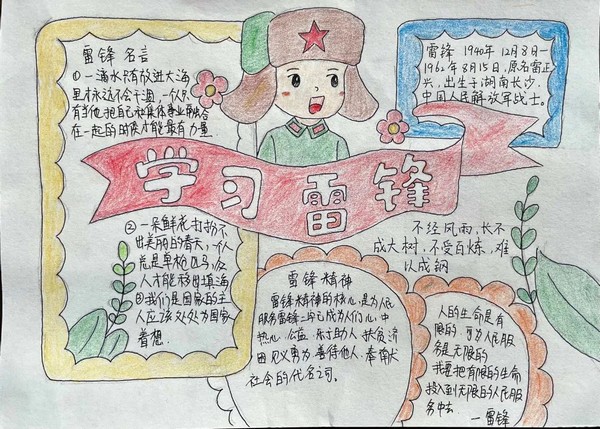 雷锋 名言
①一滴水只有放进大海
里才永远不会干涸，一个人只
有当他把自己和集体事业融合
在一起的时候才能最有力量
②一朵鲜花打扮不
出美丽的春天，一个人
总是单枪匹马，众
人才能移山填海
③我们是国家的主
人应该处处为国家
着想.
学习雷锋
雷锋 1940年12月8日—
1962年8月15日，原名雷正
兴，出生于湖南长沙，
中国人民解放军战士。
不经风雨，长不
成大树，不受百炼，难
以成钢
雷锋精神
雷锋精神的核心，是为人民
服务雷锋二字已成为人们心中
热心 公益，乐于助人 扶贫济
困 见义勇为 善待他人，奉献
社会的代名词。
人的生命是有
限的 可为人民服
务是无限的
我要把有限的生命
投入到无限的人民服
务中去
—雷锋